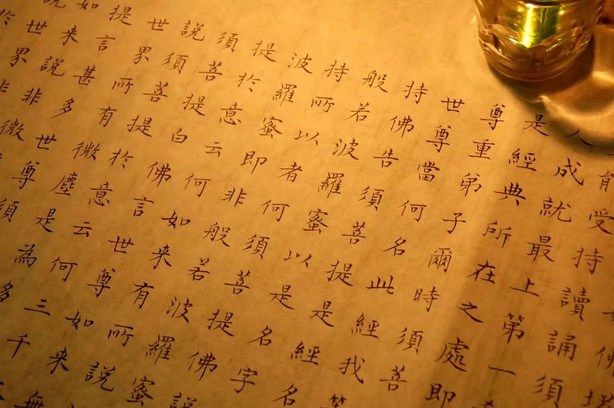 受持讀誦須
人成就最上第一
是經典所在之處即
尊重弟子爾時須菩
世尊當何名此經我等
持佛告須菩提是經名
般若波羅蜜以是名字
持所以者何須菩提佛
波羅蜜即非般若波羅蜜說
提於意云何如來有所說
須菩提白佛言世尊如來
說須菩提於意云何三千
世界所有微塵是為多
提言甚多世尊須
如來說非微
世界非